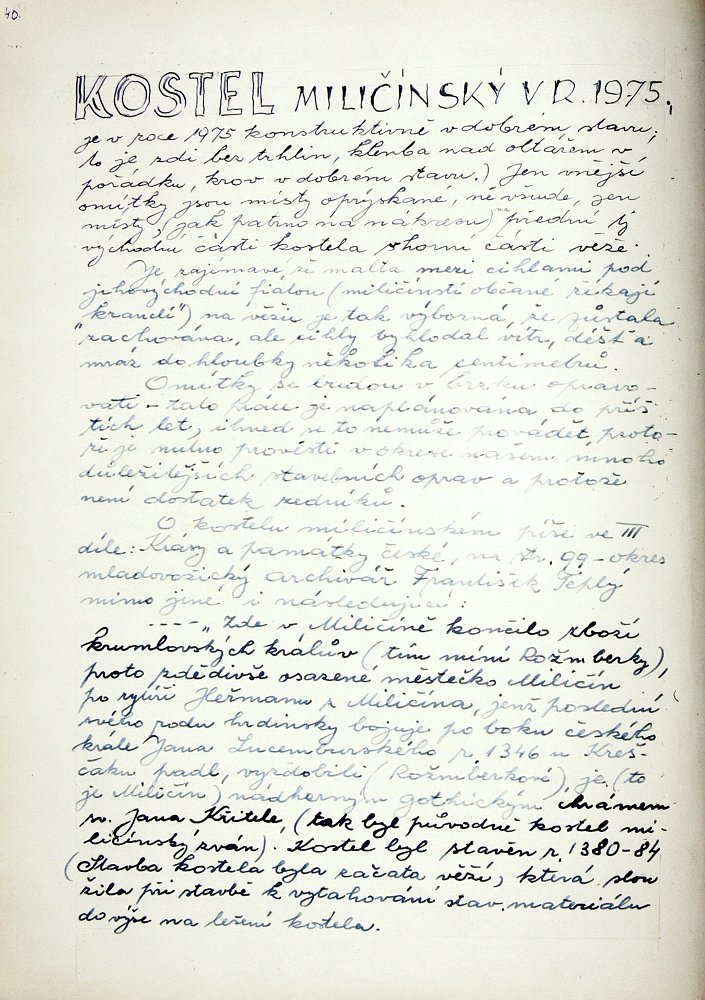 40.
KOSTEL MILIČÍNSKÝ V R. 1975.,
je v roce 1975 konstruktivně v dobrém stavu;
to je zdi bez trhlin, klenba nad oltářem v
pořádku, krov v dobrém stavu.) Jen vnější
omítky jsou místy oprýskané, né všude, jen
místy, jak patrno na nákresu) přední tj
východní části kostela horní části věže.
Je zajímavé, že malta mezi cihlami pod
jihovýchodní fialou (miličínstí občané říkají
"kranclí") na věži je tak výborná, že zůstala
zachována, ale cihly vyhlodal vítr, déšť a
mráz do hloubky několika centimetrů.
Omítky se budou v brzku opravo-
vati - tato práce je naplánována do příš
tích let, ihned se to nemůže provádět, proto-
že je nutno provésti v okrese našem mnoho
důležitějších stavebních oprav a protože
není dostatek zedníků.
O kostelu miličínském píše ve III
díle: Krásy a památky české, na str. 99 - okres
mladovožický archivář František Teplý
mimo jiné i následující:
---- „Zde v Miličíně končilo zboží
krumlovských králův (tím míní Rožmberky),
proto zdědivše osazené městečko Miličín
po rytíři Heřmanu z Miličína, jenž poslední
svého rodu hrdinsky bojuje po boku českého
krále Jana Lucemburského r. 1346 u Kreš-
čaku padl, vyzdobili (Rožmberkové) je (to
je Miličín) nádherným gothickým chrámem
sv. Jana Křtitele, (tak byl původně kostel mi-
ličínský zván). Kostel byl stavěn r. 1380-84
(Stavba kostela byla začata věží, která slou
žila při stavbě k vytahování stav. materiálu
do výše na lešení kostela.